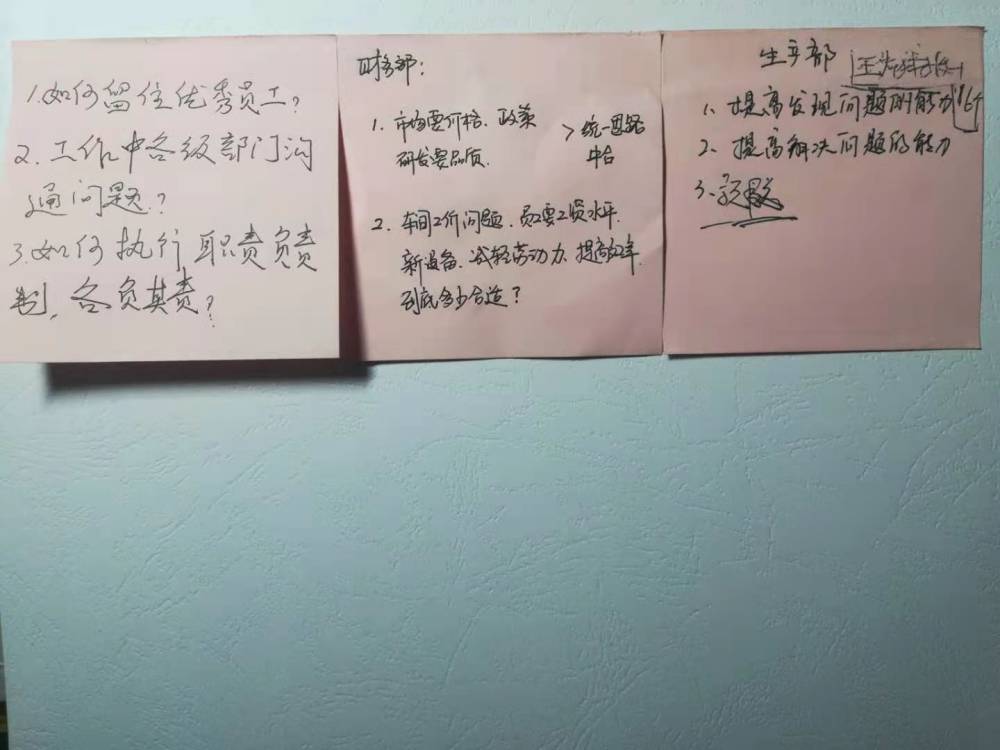 1.如何留住优秀员工?
2.工作中各级部门沟
通问题?
3.如何执行职责负责
制,各负其责?
财务部:
1. 市场要价格、政策
研发要品质.
>统一思路
中台
2. 车间工价问题.员工要工资水平.
新设备.减轻劳动力.提高效率.
到底多少合适?
生产部
1、提高发现问题的能力
2、提高解决问题的能力
3、